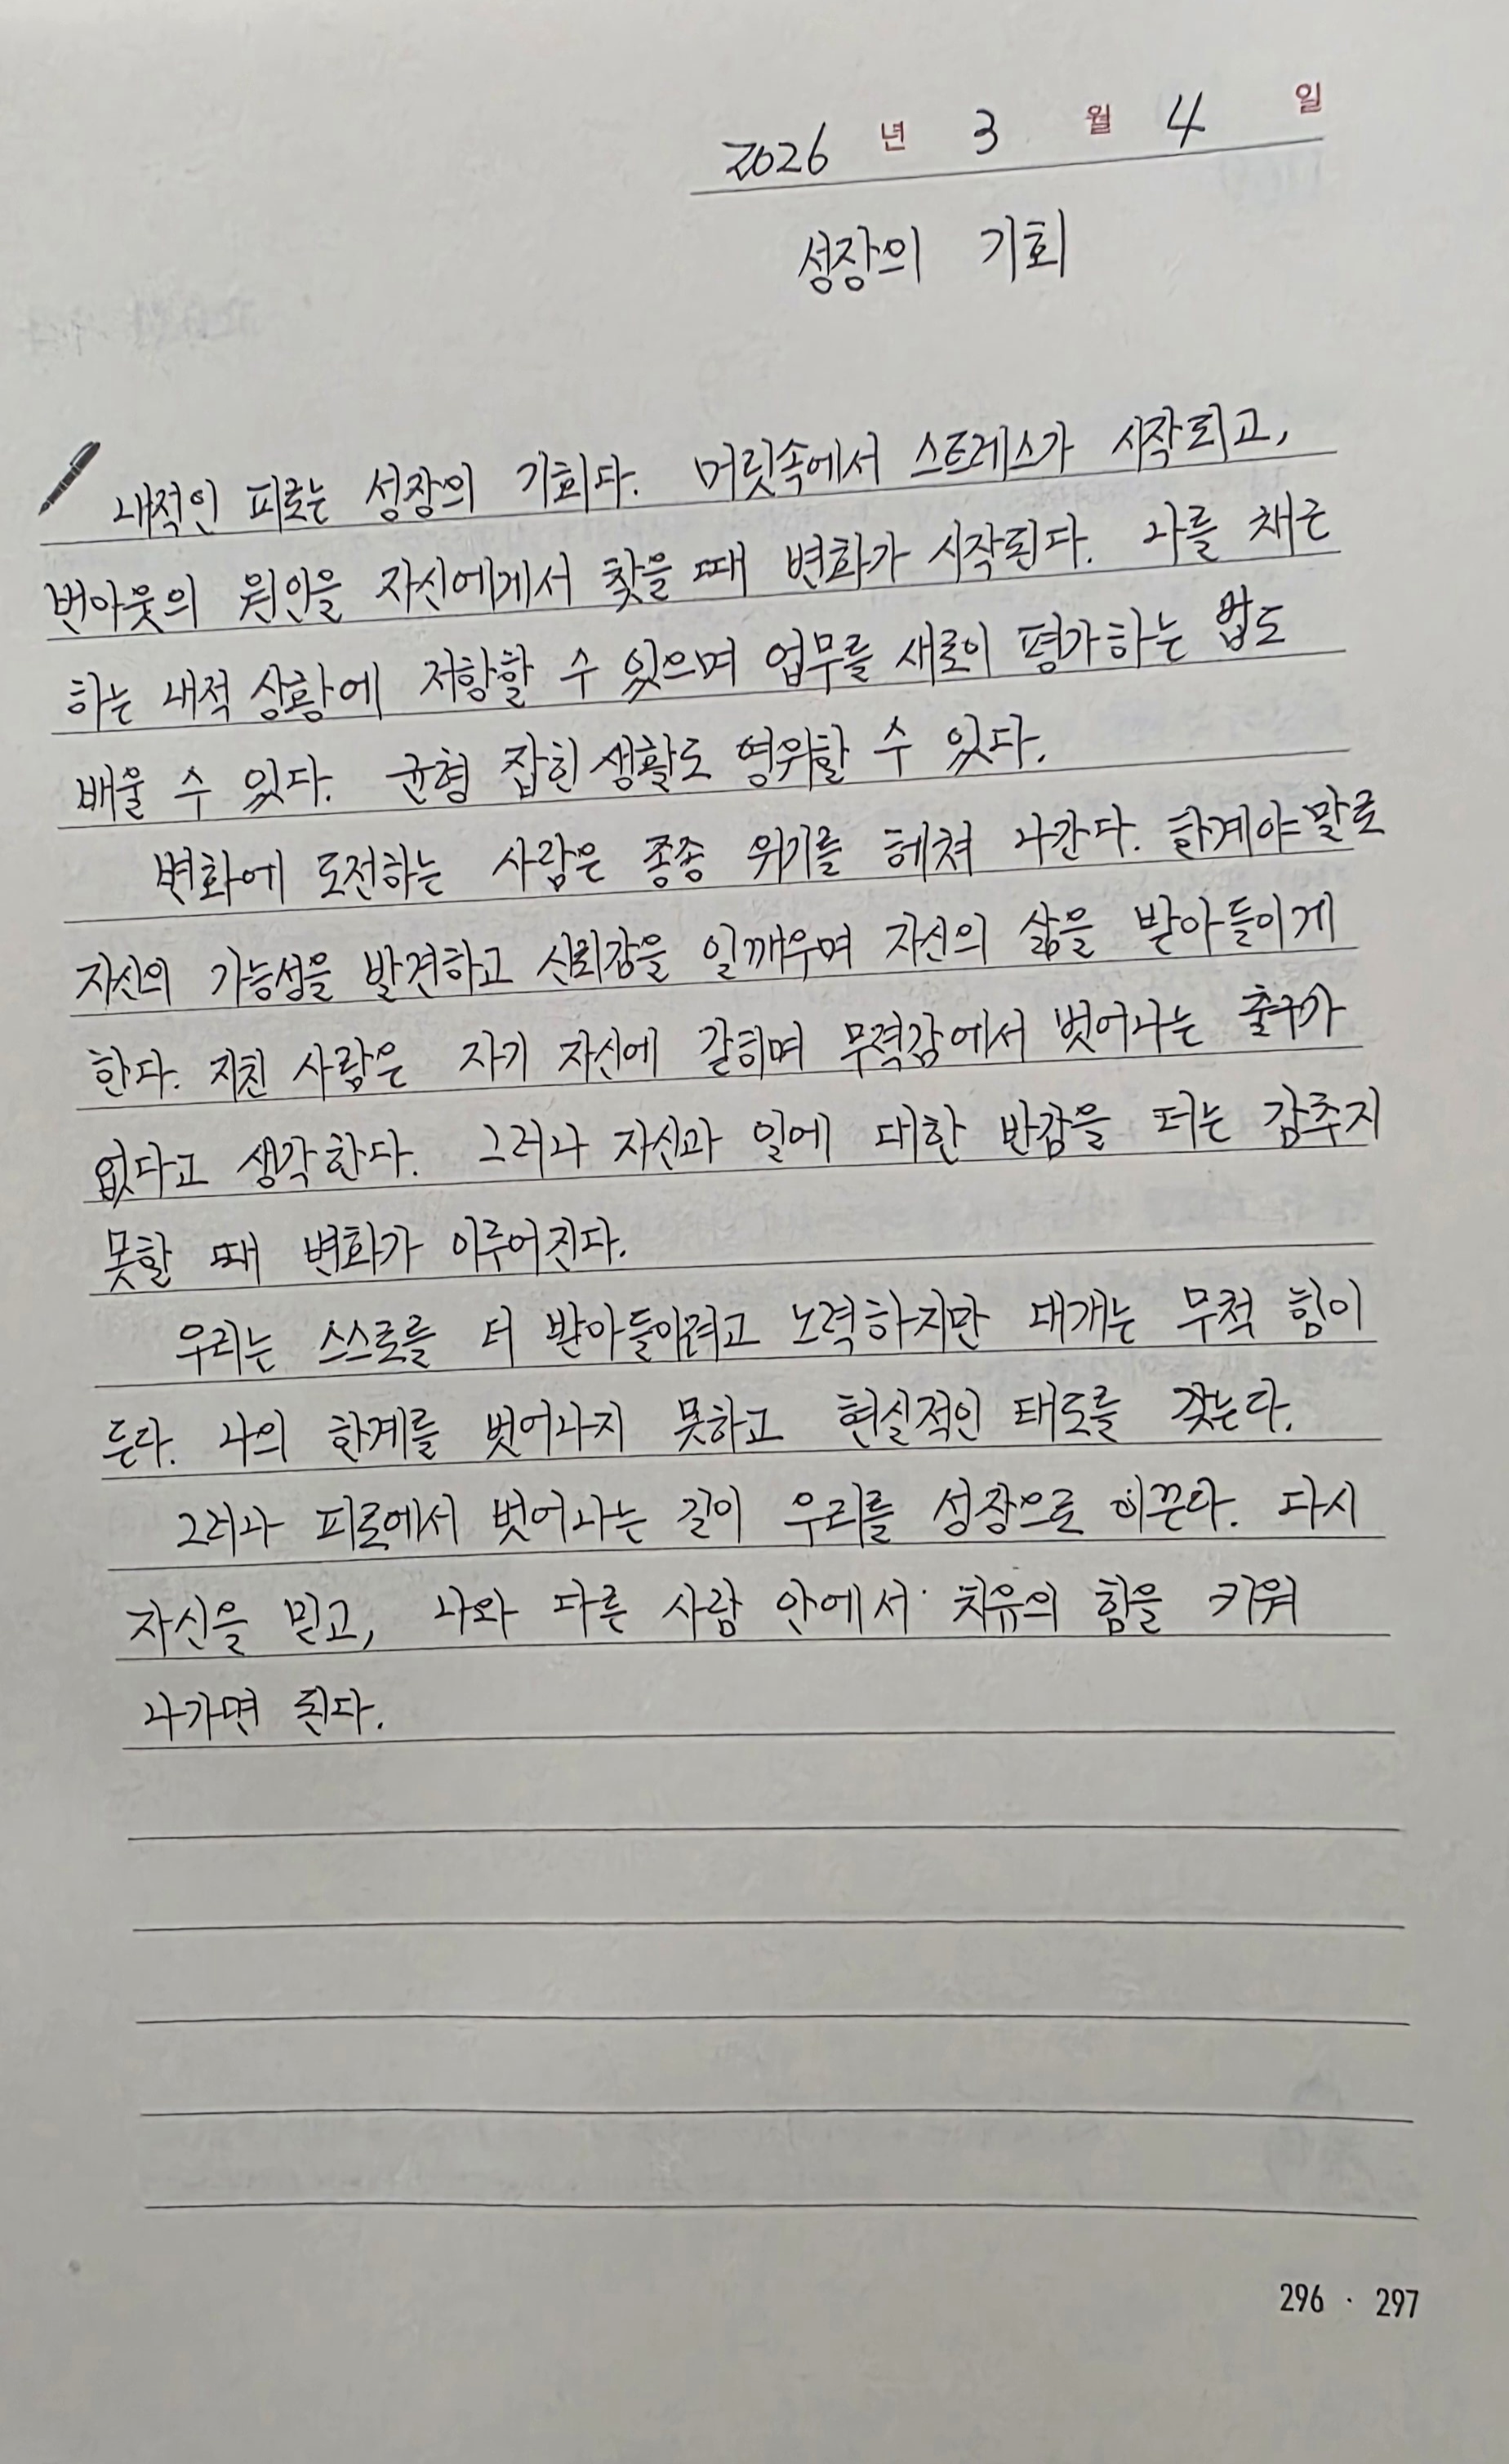 2026 년 3 월 4 일
성장의 기회
내적인 피로는 성장의 기회다. 머릿속에서 스트레스가 시작되고,
번아웃의 원인을 자신에게서 찾을 때 변화가 시작된다. 나를 채근
하는 내적 상황에 저항할 수 있으며 업무를 새로이 평가하는 법도
배울 수 있다. 균형 잡힌 생활도 영위할 수 있다.
변화에 도전하는 사람은 종종 위기를 헤쳐 나간다. 한계야말로
자신의 가능성을 발견하고 신뢰감을 일깨우며 자신의 삶을 받아들이게
한다. 지친 사람은 자기 자신에 갇히며 무력감에서 벗어나는 출구가
없다고 생각한다. 그러나 자신과 일에 대한 반감을 더는 감추지
못할 때 변화가 이루어진다.
우리는 스스로를 더 받아들이려고 노력하지만 대개는 무척 힘이
든다. 나의 한계를 벗어나지 못하고 현실적인 태도를 갖는다.
그러나 피로에서 벗어나는 길이 우리를 성장으로 이끈다. 다시
자신을 믿고, 나와 다른 사람 안에서 치유의 힘을 키워
나가면 된다.
296 · 297